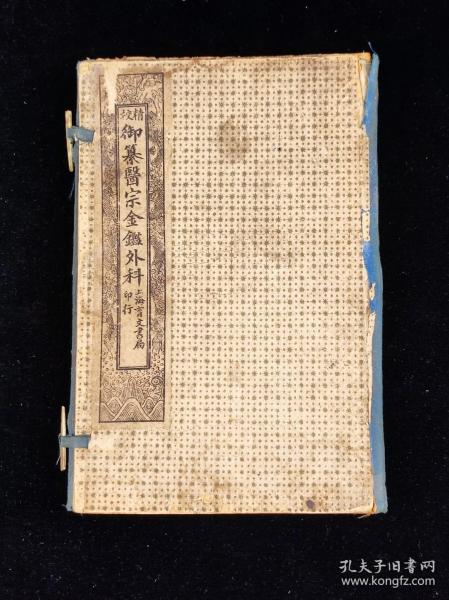 精校
御纂醫宗金鑑外科
上海育文書局
印行
孔夫子旧书网
www.kongfz.com